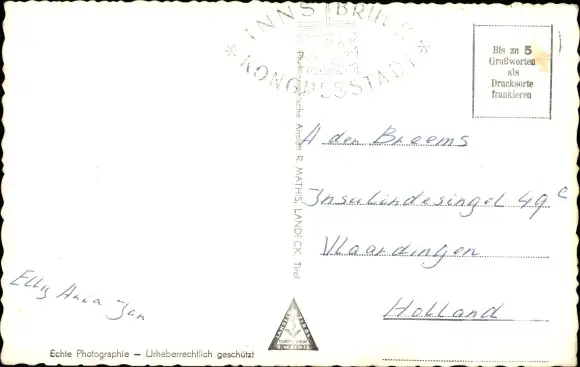 INNSBRUCK
* KONGRESSSTADT *
Bis zu 5
Grußworten
als
Drucksorte
frankieren
Photographische Anstalt R. MATHIS, LANDECK, Tirol
A den Breems
Insulindesingel 49c
Vlaardingen
Holland
Elly Anna Jan
Echte Photographie – Urheberrechtlich geschützt